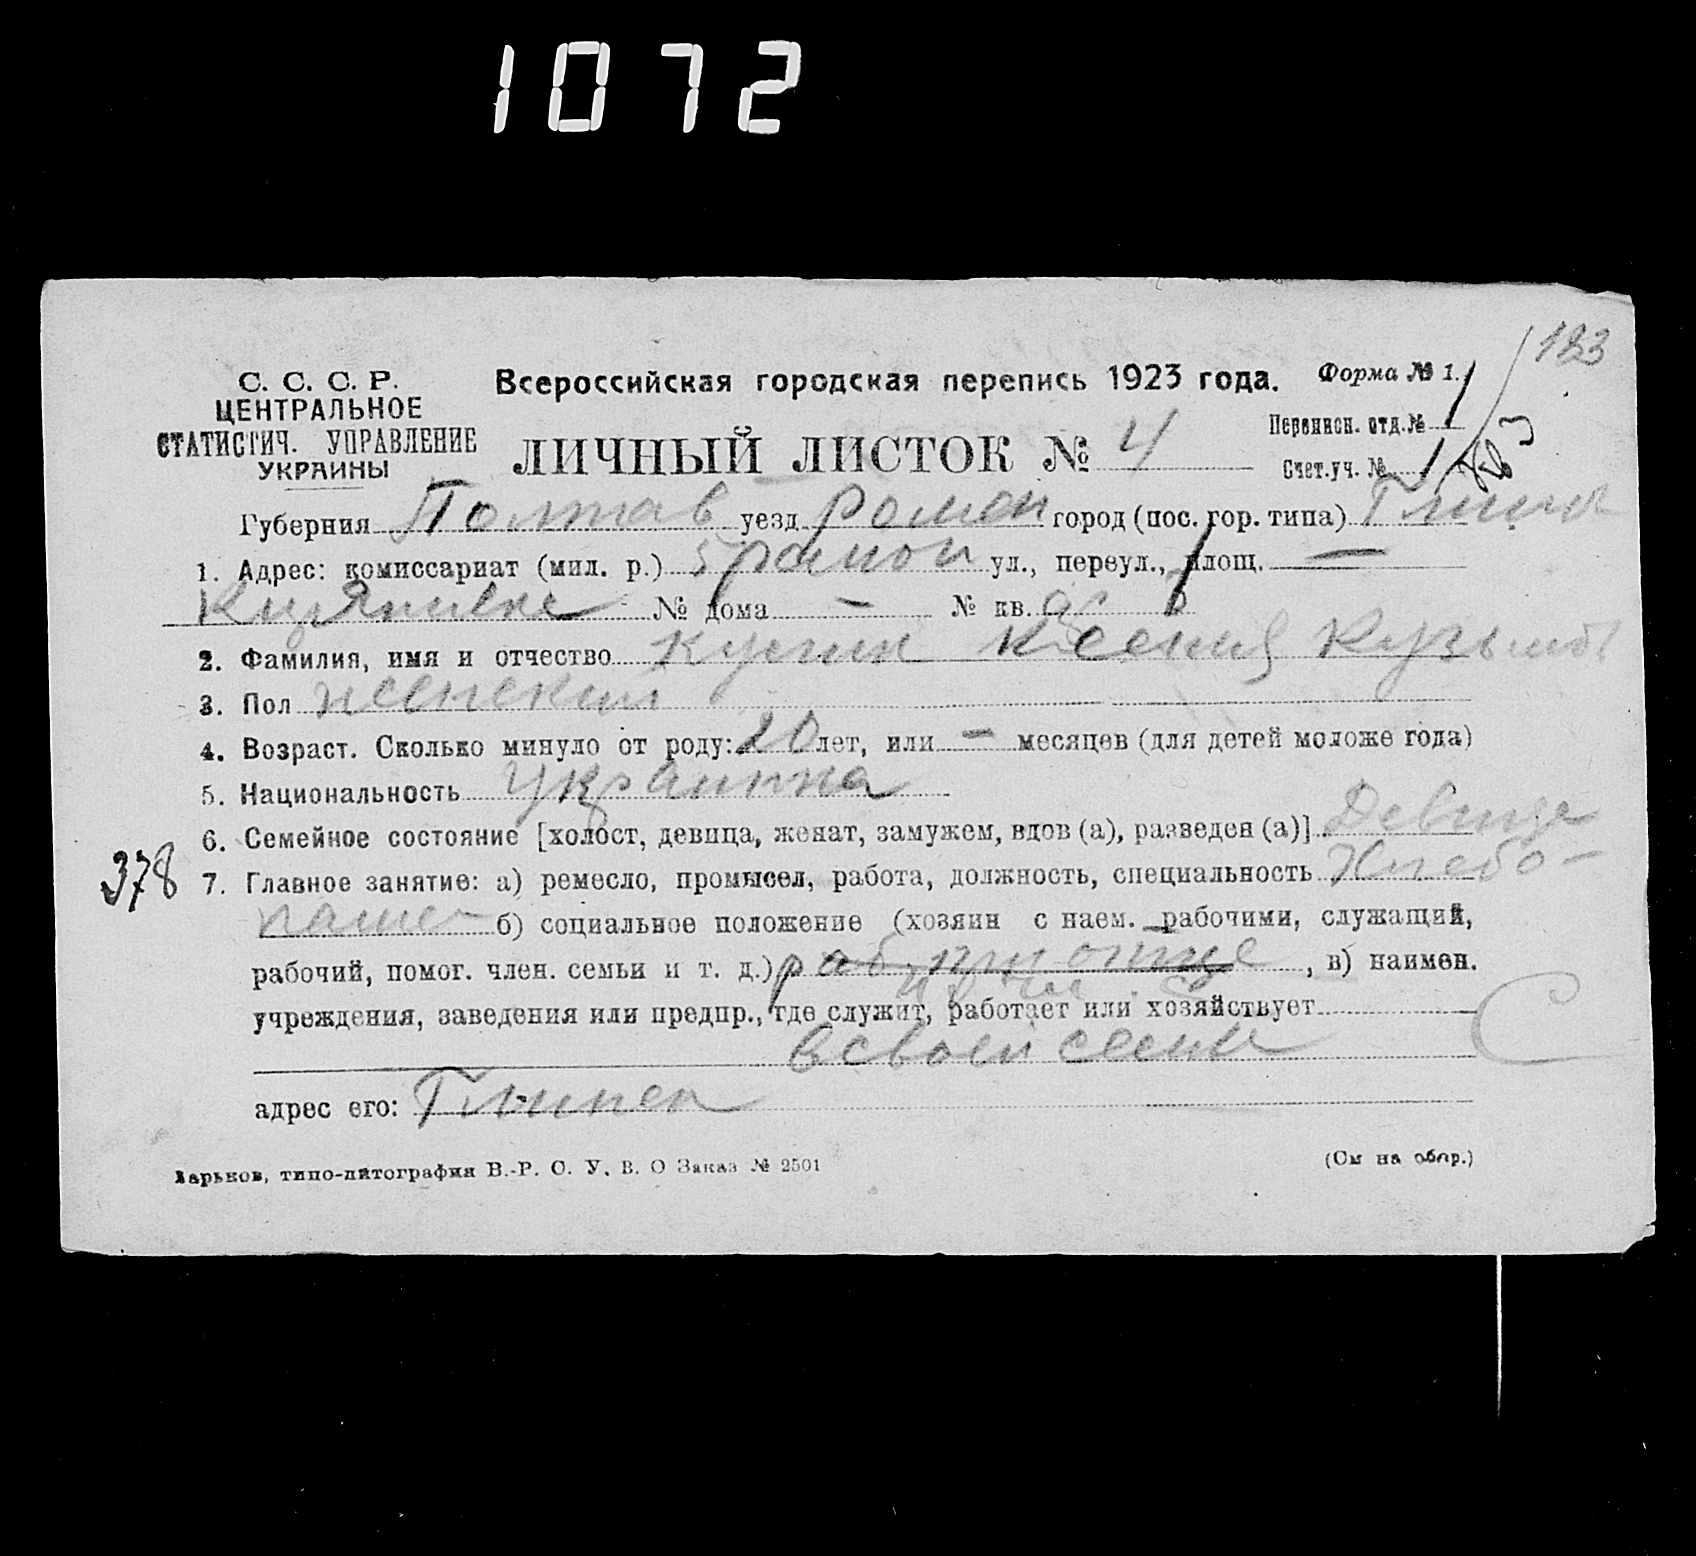 1072
183
С. С. С. Р.
ЦЕНТРАЛЬНОЕ
СТАТИСТИЧ. УПРАВЛЕНИЕ
УКРАИНЫ
Всероссийская городская перепись 1923 года.
Форма № 1.
ЛИЧНЫЙ ЛИСТОК № 4
Переписн. отд. № 1
Счет. уч. № 1
Губерния Полтав уезд Ромен город (пос. гор. типа) Глинск
1. Адрес: комиссариат (мил. р.) 5 район ул., переул., площ. —
№ дома — № кв.
2. Фамилия, имя и отчество Ксения Кузьм
3. Пол женский
4. Возраст. Сколько минуло от роду: 20 лет, или — месяцев (для детей моложе года)
5. Национальность Украинка
6. Семейное состояние [холост, девица, женат, замужем, вдов (а), разведен (а)] Девица
378
7. Главное занятие: а) ремесло, промысел, работа, должность, специальность Хлебо-
пашец б) социальное положение (хозяин с наем. рабочими, служащий,
рабочий, помог. член. семьи и т. д.) раб. при отце, в) наимен.
учреждения, заведения или предпр., где служит, работает или хозяйствует
в своей семье
С
адрес его: Глинск
Харьков, типо-литография В.-Р. С. У. В. О Заказ № 2501
(См на обор.)